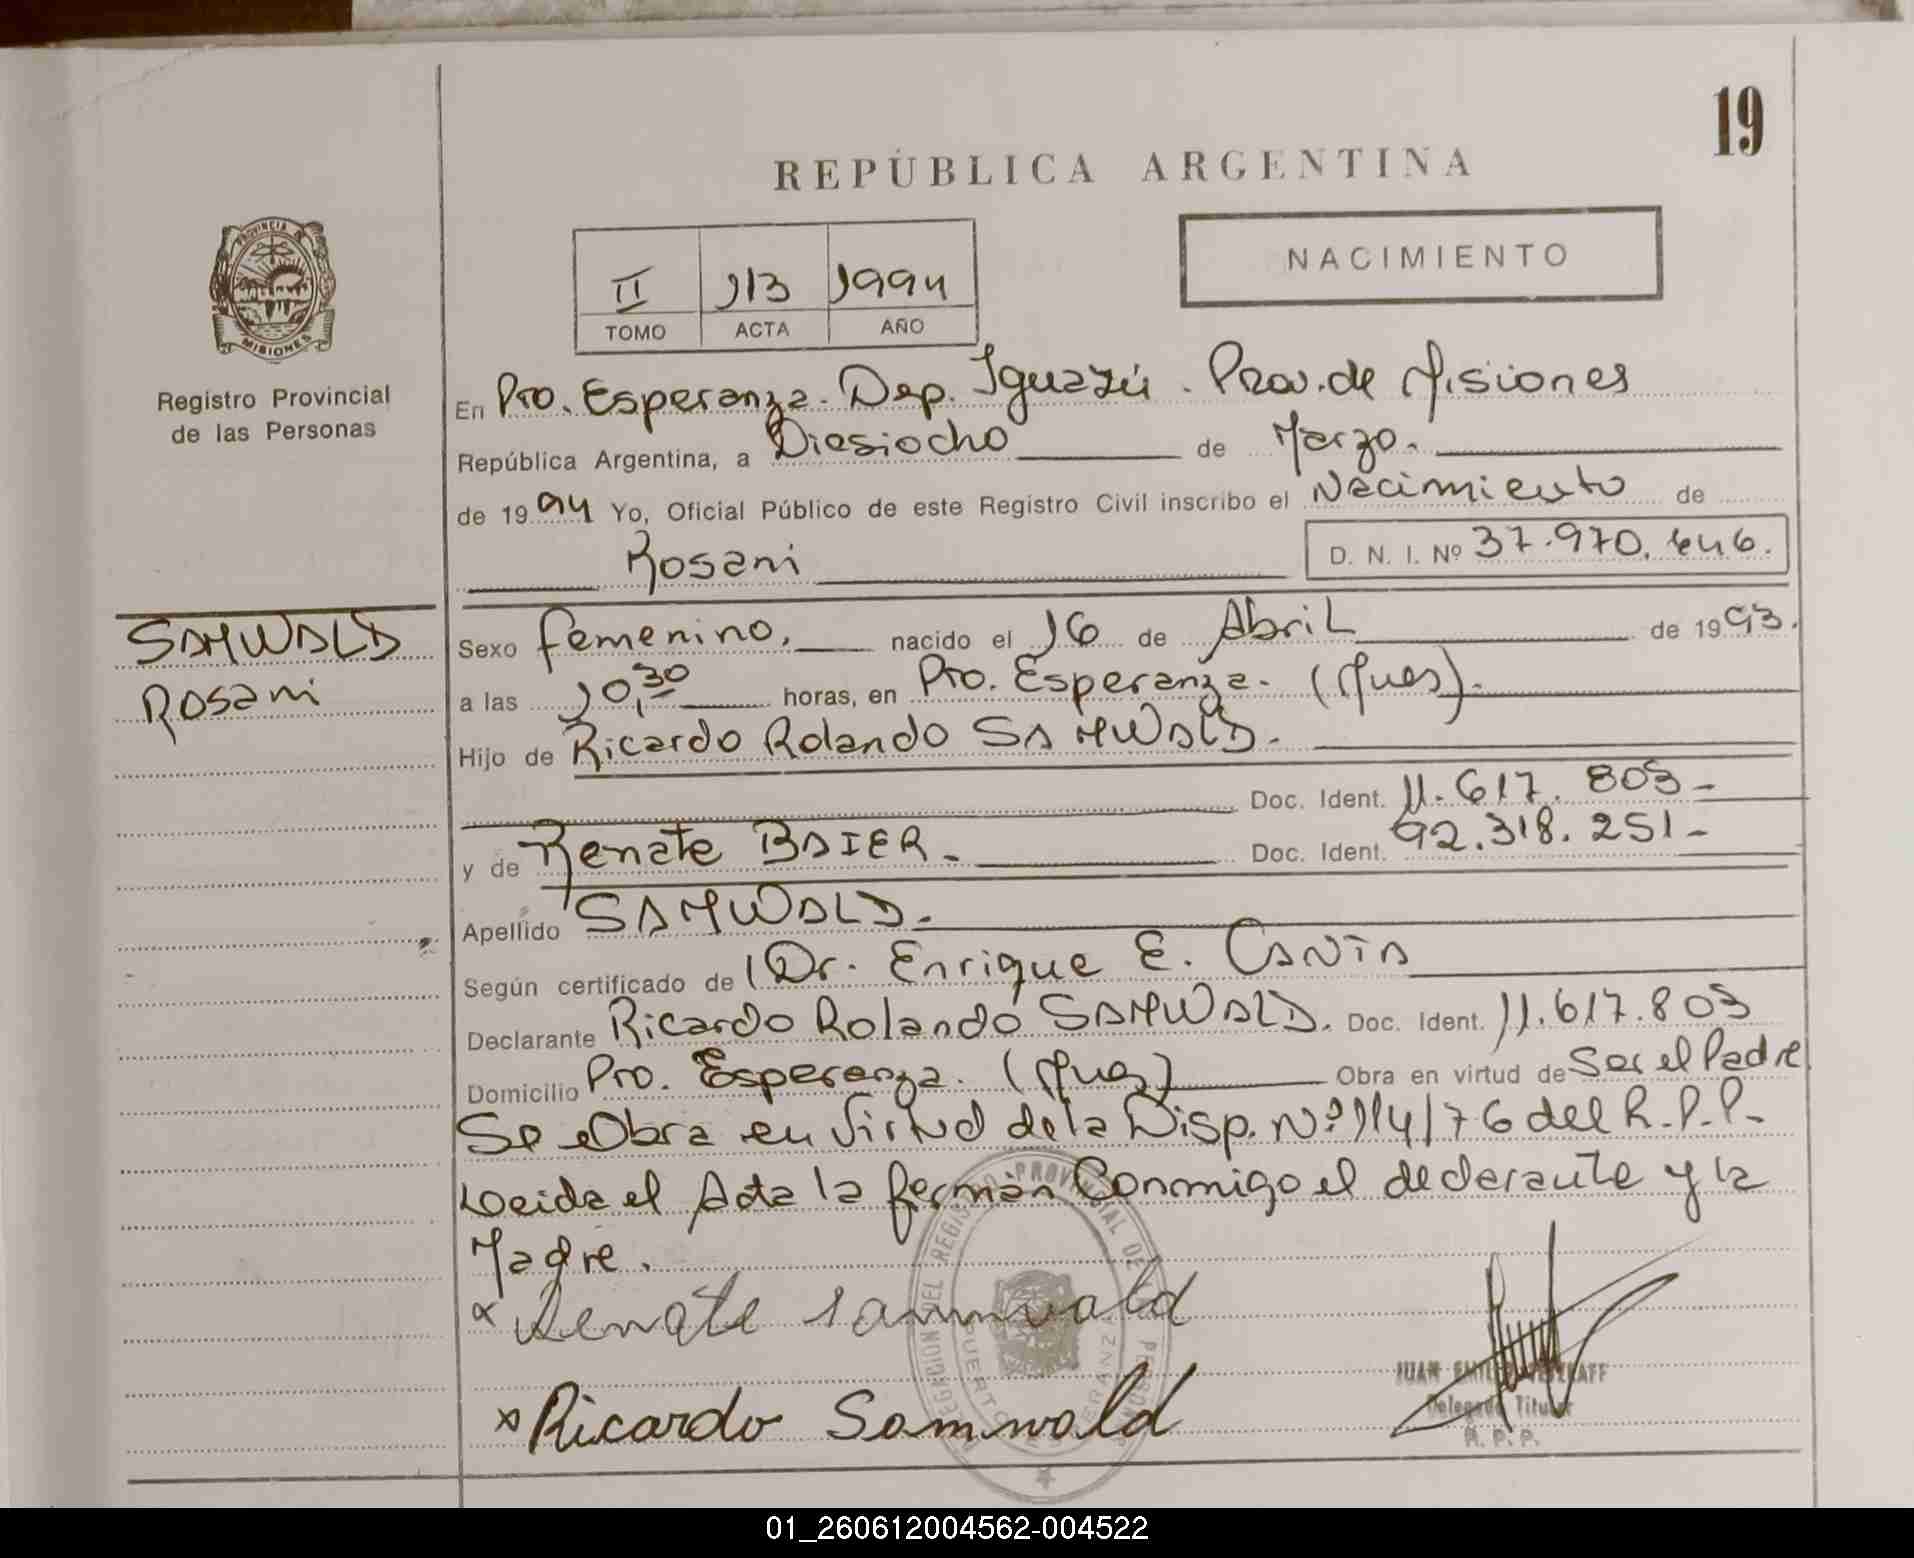 19
REPÚBLICA ARGENTINA
NACIMIENTO
II 113 1994
TOMO ACTA AÑO
PROVINCIA DE
MISIONES
Registro Provincial
de las Personas
En Pto. Esperanza. Dep. Iguazú. Prov. de Misiones
República Argentina, a Diesiocho de Marzo.
de 1994 Yo, Oficial Público de este Registro Civil inscribo el Nacimiento de
Rosani D. N. I. Nº 37.970.646.
SAMWALD
Rosani
Sexo femenino, nacido el 16 de Abril de 1993.
a las 10,30 horas, en Pto. Esperanza. (Mnes).
Hijo de Ricardo Rolando SAMWALD.
Doc. Ident. 11.617.803-
y de Renate BAIER. Doc. Ident. 92.318.251-
Apellido SAMWALD.
Según certificado de Dr. Enrique E. CANTA
Declarante Ricardo Rolando SAMWALD. Doc. Ident. 11.617.803
Domicilio Pto. Esperanza. (Mnes) Obra en virtud de Ser el Padre
Se Obra en Virtud de la Disp. Nº 114/76 del R.P.P.-
Leida el Acta la ferman Conmigo el declarante y la
Madre.
Renate Samwald
Ricardo Samwald
JUAN
Delegado Titular
R. P. P.
01_260612004562-004522